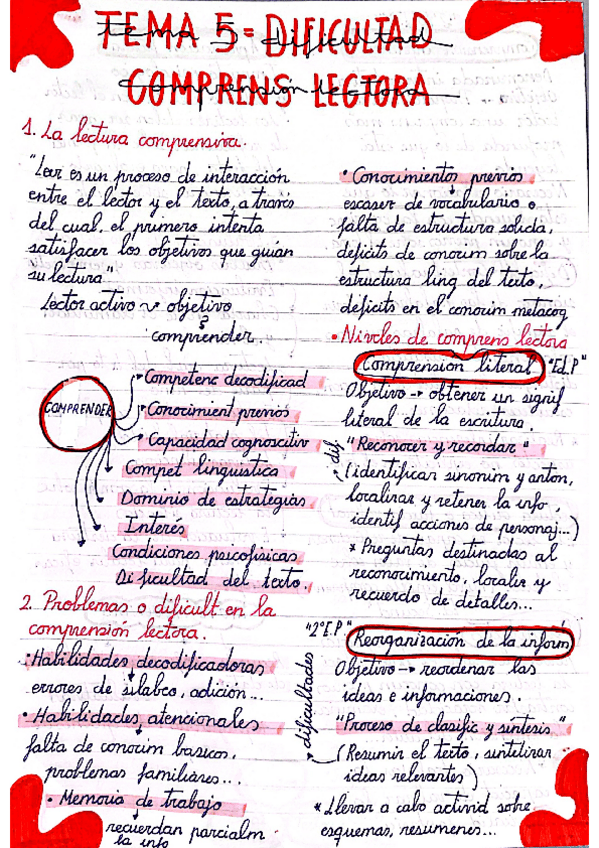 TEMA 5= DIFICULTAD
COMPRENS LECTORA
1. La lectura comprensiva.
"Leer es un proceso de interacción
entre el lector y el texto, a través
del cual, el primero intenta
satisfacer los objetivos que guían
su lectura"
Lector activo → objetivo
comprender.
COMPRENDER
Competenc decodificad
Conocimient previos
Capacidad cognoscitiv
Compet linguistica
Dominio de estrategias
Interés
Condiciones psicofísicas
Dificultad del texto.
2. Problemas o dificult en la
comprensión lectora.
• Habilidades decodificadoras
errores de silabeo, adición...
• Habilidades atencionales
falta de conocim basicos,
problemas familiares...
• Memoria de trabajo
recuerdan parcialm
la info
• Conocimientos previos
escasez de vocabulario o
falta de estructura solida,
deficits de conocim sobre la
estructura ling del texto,
deficits en el conocim metacog
• Niveles de comprens lectora
Comprensión literal "Ed.P"
Objetivo → obtener un signif
literal de la escritura.
"Reconocer y recordar"
dif
(identificar sinonim y anton,
localizar y retener la info,
identif acciones de personaj...)
* Preguntas destinadas al
reconocimiento, localiz y
recuerdo de detalles...
"2º E.P" Reorganización de la inform
Objetivo → reordenar las
ideas e informaciones.
"Proceso de clasific y síntesis"
dificultades
(Resumir el texto, sintetizar
ideas relevantes)
* Llevar a cabo activid sobre
esquemas, resumenes...